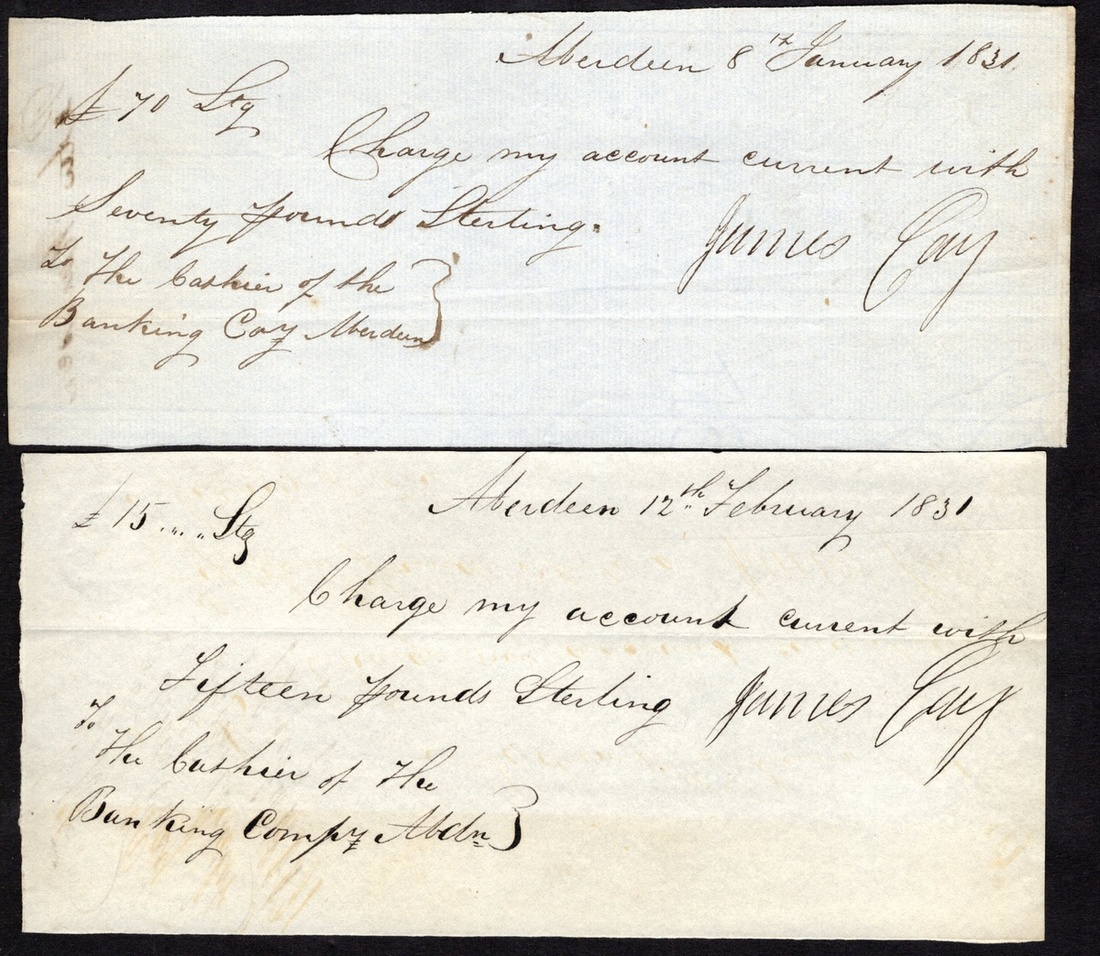 Aberdeen 8th January 1831
£ 70 Stg
Charge my account current with
Seventy pounds Sterling.
James Cay
To
The Cashier of the
Banking Coy Aberdeen
Aberdeen 12th February 1831
£ 15 .... Stg
Charge my account current with
Fifteen pounds Sterling James Cay
To
The Cashier of The
Banking Compy Abdn